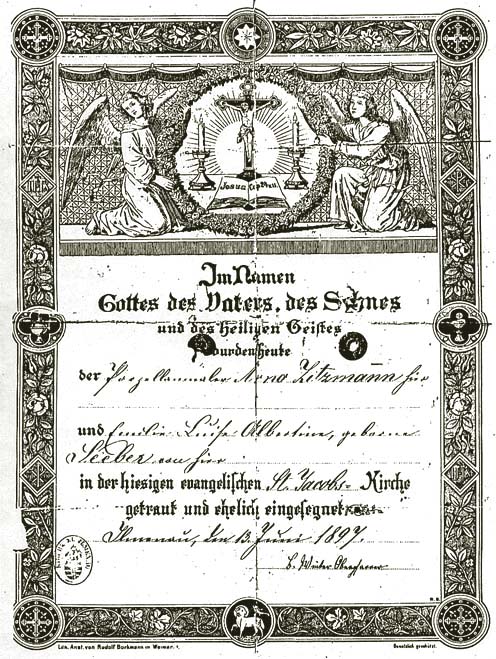 Im Namen
Gottes des Vaters, des Sohnes
und des heiligen Geistes
wurden heute
der Porzellanmaler Arno Zitzmann hier
und Emilie Luise Albertine, geborne
Seeber von hier
in der hiesigen evangelischen St. Jacobs- Kirche
getraut und ehelich eingesegnet
Ilmenau, den 13. Juni 1897.
Lith. Anst. von Rudolf Borkmann in Weimar.
Gesetzlich geschützt.